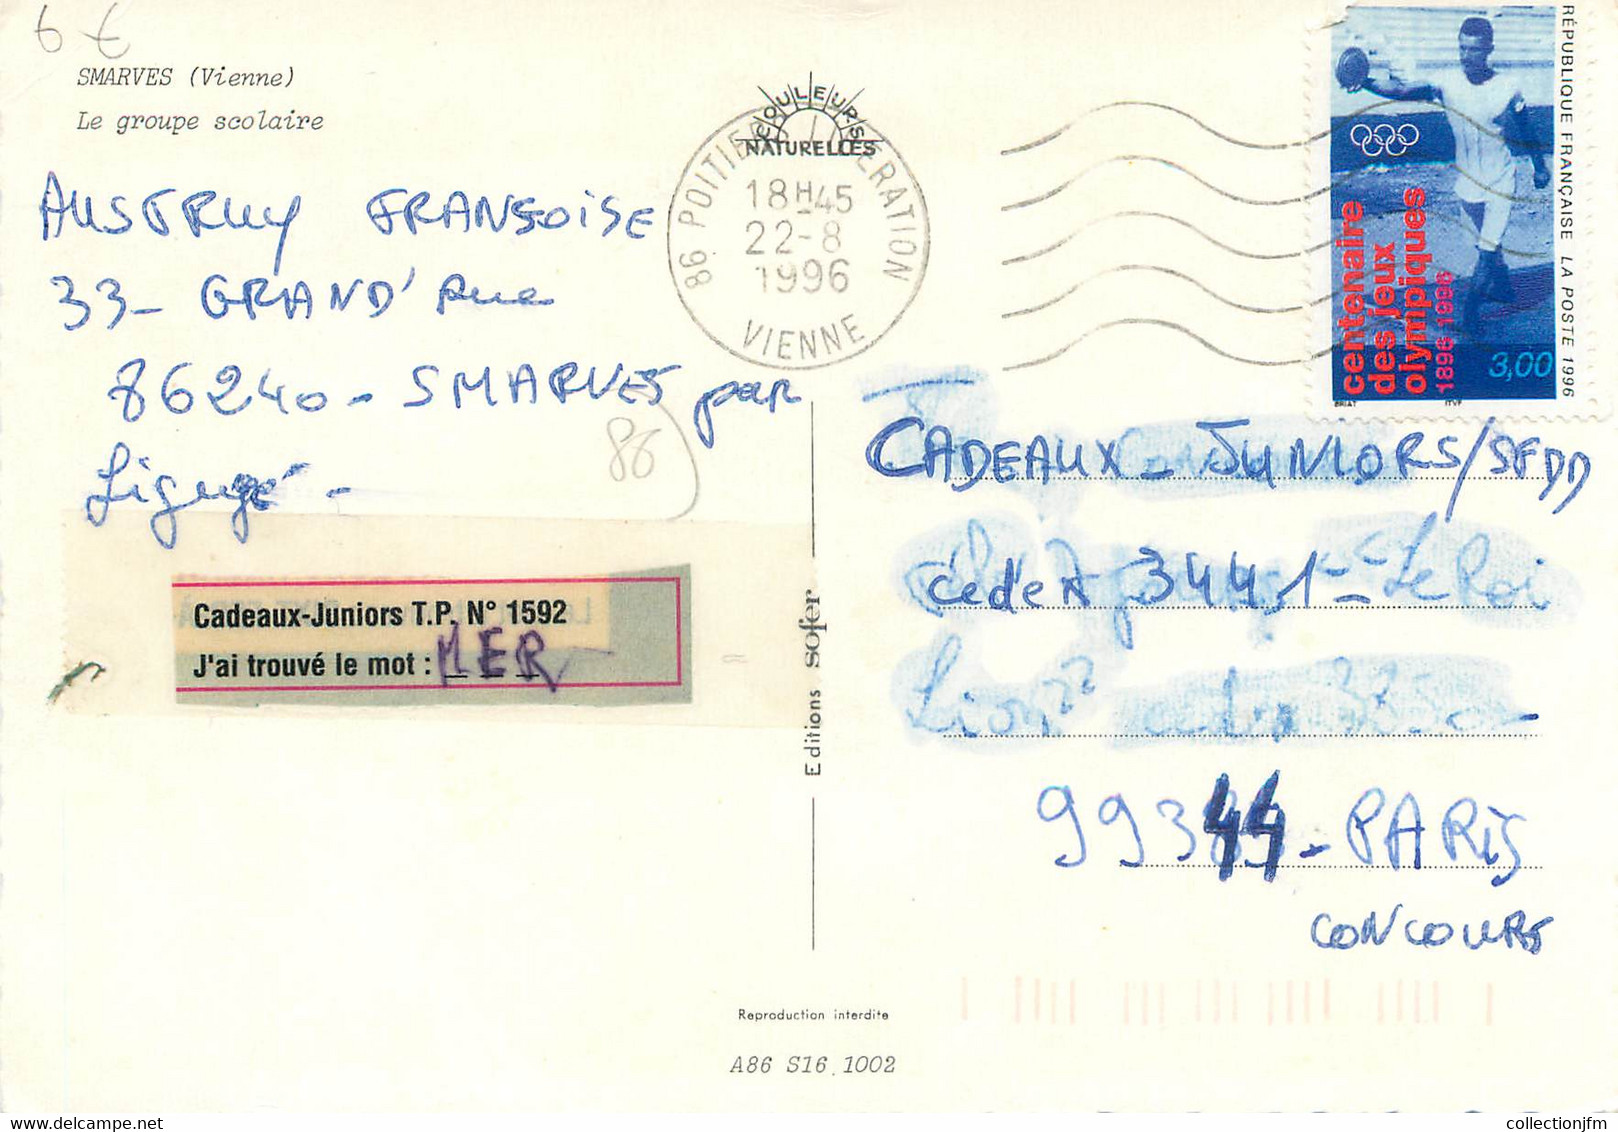 6 €
SMARVES (Vienne)
Le groupe scolaire
COULEURS
NATURELLES
86 POITIERS LIBERATION
18H45
22-8
1996
VIENNE
RÉPUBLIQUE FRANÇAISE LA POSTE 1996
centenaire
des jeux
olympiques
1896 1996
3,00
BRIAT
ITVF
AUSTRUY FRANSOISE
33- GRAND'Rue
86240- SMARVES par
Ligugé-
86
Cadeaux-Juniors T.P. N° 1592
J'ai trouvé le mot : MER
Editions sofer
CADEAUX- JUNIORS/SFDD
cedex 3441-
99344- PARIS
CONCOURS
Reproduction interdite
A86 S16.1002
collectionjfm